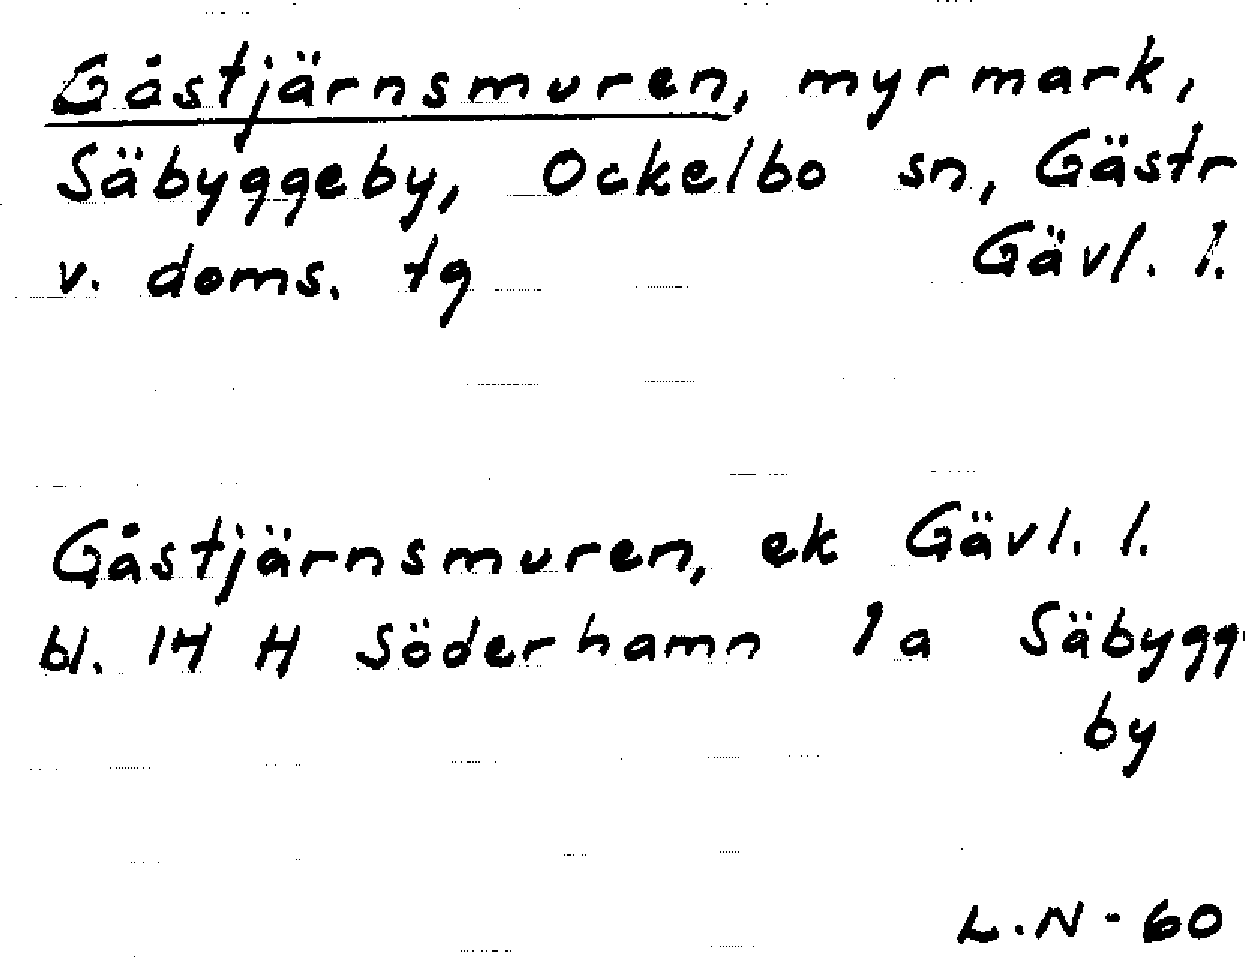 Gåstjärnsmuren, myrmark,
Säbyggeby, Ockelbo sn, Gästr
v. doms. tg Gävl. l.
Gåstjärnsmuren, ek Gävl. l.
bl. 14 H Söderhamn 1a Säbygg
by
L.N - 60